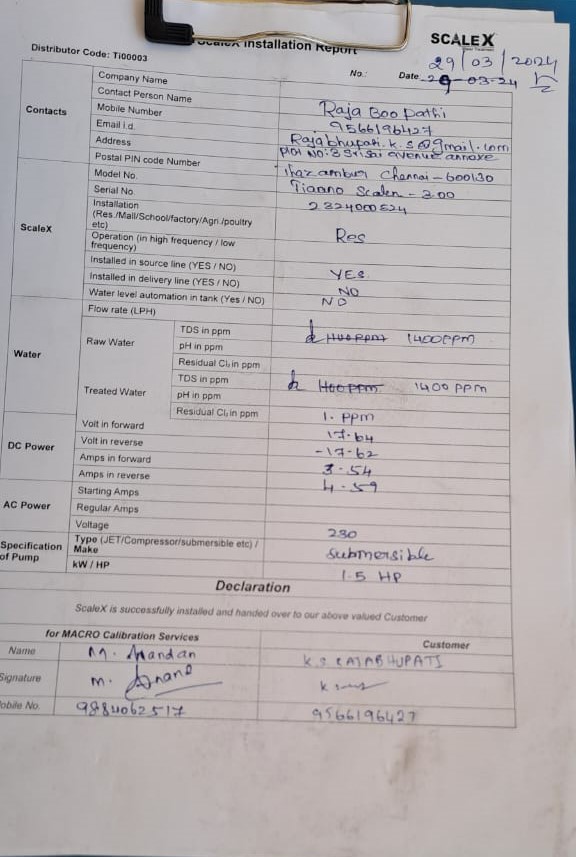 ScaleX Installation Report
SCALEX
Distributor Code: Ti00003
29/03/2024
No.:
Date 29-03-24
Contacts
Company Name
Contact Person Name
Raja Boo pathi
Mobile Number
9566196427
Email i.d.
Rajabhupati.k.s@gmail.com
Address
Plot NO: 3 Sri Sai avenue annaxe
Postal PIN code Number
Thazambur Chennai - 600130
ScaleX
Model No.
Tiano Scalen - 300
Serial No.
2324000524
Installation
(Res./Mall/School/factory/Agri./poultry
etc)
Res
Operation (in high frequency / low
frequency)
Installed in source line (YES / NO)
YES
Installed in delivery line (YES / NO)
NO
Water level automation in tank (Yes / NO)
NO
Water
Flow rate (LPH)
Raw Water
TDS in ppm
1400PPM
pH in ppm
Residual Cl₂ in ppm
Treated Water
TDS in ppm
1400 PPM
pH in ppm
Residual Cl₂ in ppm
1. PPM
DC Power
Volt in forward
17.64
Volt in reverse
-17.62
Amps in forward
3.54
Amps in reverse
4.59
AC Power
Starting Amps
Regular Amps
Voltage
230
Specification
of Pump
Type (JET/Compressor/submersible etc) /
Make
Submersible
kW / HP
1.5 HP
Declaration
ScaleX is successfully installed and handed over to our above valued Customer
for MACRO Calibration Services
Customer
Name
M. Anandan
K S RAJABHUPATI
Signature
M. Anand
Mobile No.
9884062517
9566196427